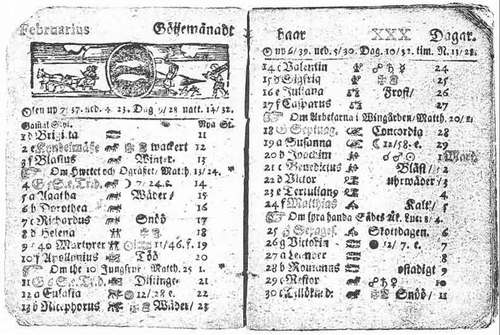 Februarius Göijemånadt
haar XXX Dagar.
Solen up 7/37. ned. 4. 23. Dag 9/28 natt. 14/32.
Gamat Styl. Nya St.
1 d Brigita 11
2 e Kyndelmässe wackert 12
3 f Blasius Winter. 13
Om Hwetet och Ogräset/ Matth. 13/24.
4 G 5. e. Tr. d. 7/24. e. 14
5 a Agatha Wäder/ 15
6 b Dorothea 16
7 c Richardus Snöö 17
8 d Helena 18
9 40 Martyrer 11/46. f. 19
10 f Apollonius Töö 20
Om the 10 Jungfrur Matth. 25 1.
11 G 6. e. Tr. d. Distinge. 21
12 a Eulalia 12/28 e. 22
13 b Nicephorus Wäder/ 23
up 6/39. ned. 5/30. Dag. 10/52. tim. N. 13/28.
14 c Valentin 24
15 d Sigfrid 25
16 e Juliana Frost/ 26
17 f Casparus 27
Om Arbetarna i Wingården/ Matth. 20/1
18 G Septuag. Concordia 28
19 a Susanna 12/58. e. 29
20 b Joachim 1 Mart.
21 c Benedictus Bläst/ 2
22 d Victor uhrwäder/ 3
23 e Terluliang 4
24 f Matthias Kalt/ 5
Om fyra handa Sädes Åk. Luc: 8/4.
25 G Sexages. Skottdagen. 6
26 g Victorin 12/ 7. e. 7
27 a Leander 8
28 b Romanus ostadigt 9
29 c Nestor 10
30 c Tillökud: Snöö/ 11